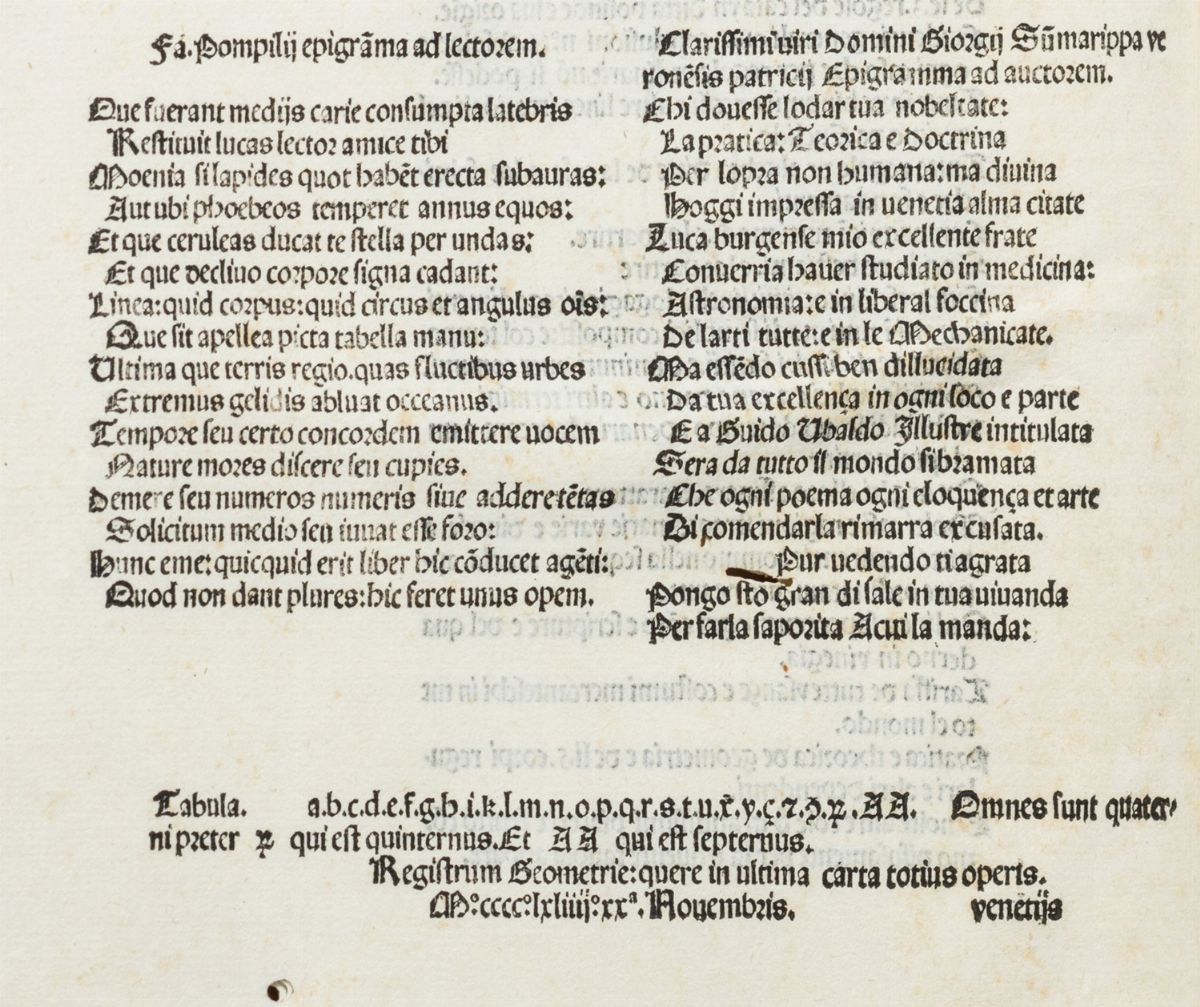 Fa. Pompilij epigrãma ad lectorem.
Que fuerant medijs carie consumpta latebris
Restituit lucas lector amice tibi
Moenia si lapides quot habẽt erecta sub auras:
Aut ubi phoebeos temperet annus equos:
Et que ceruleas ducat te stella per undas:
Et que declivo corpore signa cadant:
Linea: quid corpus: quid circus et angulus oĩs:
Que sit apellea picta tabella manu:
Ultima que terris regio. quas fluctibus urbes
Extremus gelidis abluat occeanus.
Tempore seu certo concordem emittere uocem
Nature mores discere seu cupies.
Demere seu numeros numeris siue addere tẽtas
Solicitum medio seu iuuat esse foro:
Hunc eme: quicquid erit liber hic cõducet agẽti:
Quod non dant plures: hic feret unus opem.
Clarissimi uiri Domini Giorgij Sũmarippa ve
ronẽsis patricij Epigramma ad auctorem.
Chi douesse lodar tua nobeltate:
La pratica: Teorica e Doctrina
Per lopra non humana: ma diuina
Hoggi impressa in uenetia alma citate
Luca burgense mio excellente frate
Conuerria hauer studiato in medicina:
Astronomia: e in liberal foccina
De larti tutte: e in le Mechanicate.
Ma essẽdo cussi ben dillucidata
Da tua excellença in ogni loco e parte
E a Guido Ubaldo Illustre intitulata
Sera da tutto il mondo si bramata
Che ogni poema ogni eloquença et arte
Di comendarla rimarra excusata.
Pur uedendo ti agrata
Pongo sto gran di sale in tua uiuanda
Per farla saporita A cui la manda:
Tabula. a.b.c.d.e.f.g.h.i.k.l.m.n.o.p.q.r.s.t.u.x.y.ç.⁊.ꝯ.ꝝ.AA. Omnes sunt quater-
ni preter ꝝ qui est quinternus. Et AA qui est septernus.
Registrum Geometrie: quere in ultima carta totius operis.
M°.cccc°lxliiij°.xxª. Nouembris. venetijs